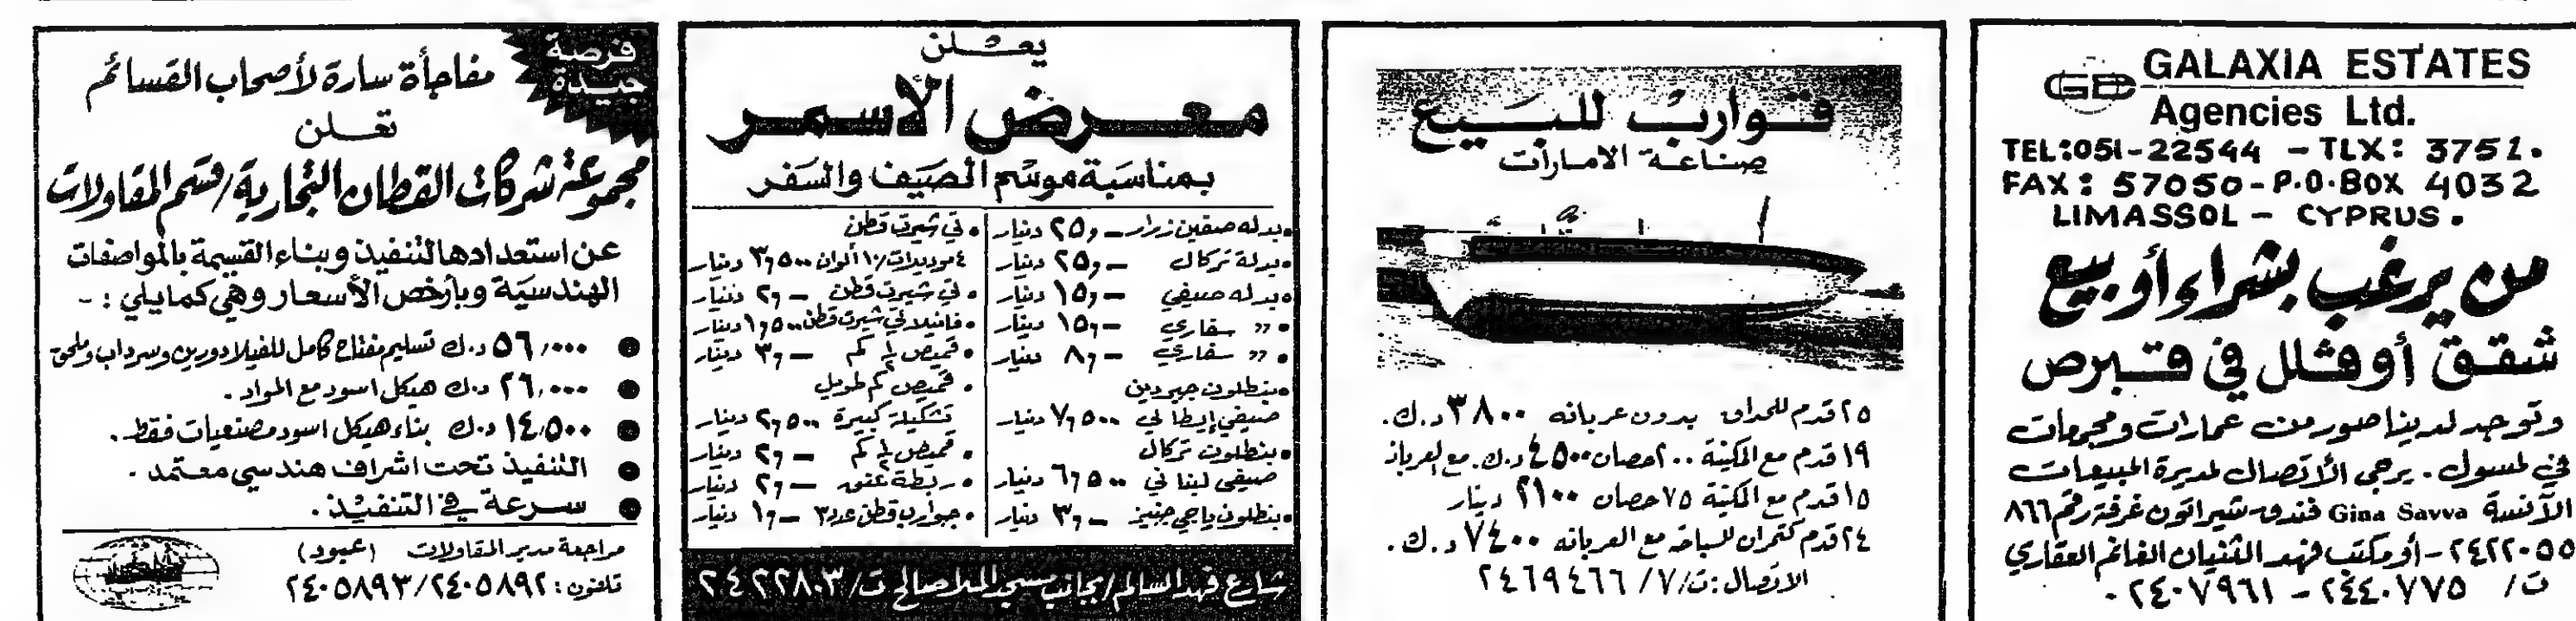 GALAXIA ESTATES
Agencies Ltd.
TEL:051-22544 - TLX: 3751.
FAX: 57050-P.O.BOX 4032
LIMASSOL - CYPRUS.
من يرغب بشراء أو بيع
شقق أو فلل في قبرص
وتوجد لدينا صور من عمارات ومجمعات
في لمسول. يرجى الأتصال لمديرة المبيعات
الآنسة Gina Savva فندق شيراتون غرفة رقم ٨٦٦
٢٤٢٢٠٥٥ - أو مكتب فهد الثنيان الغانم العقاري
ت/ ٢٤٤٠٧٧٥ - ٢٤٠٧٩٦١ .
قوارب للبيع
صناعة الامارات
٢٥ قدم للحداق بدون عربانه ٣٨٠٠ د.ك.
١٩ قدم مع المكينة ٢٠٠ حصان ٤٥٠٠ د.ك. مع العربانه
١٥ قدم مع المكينة ٧٥ حصان ٢١٠٠ دينار
٢٤ قدم كتمران للسباحة مع العربانه ٧٤٠٠ د.ك.
الاتصال: ت/ ٧/ ٢٤٦٩٤٦٦
يعلن
معرض الأسمر
بمناسبة موسم الصيف والسفر
•بدله صقين زرار -,٢٥ دينار
•بدلة تركال -,٢٥ دينار
•بدله صيفي -,١٥ دينار
• " سفاري -,١٥ دينار
• " سفاري -,٨ دينار
•بنطلون جبردين
صيفي إيطالي ٧,٥٠٠ دينار
•بنطلون تركال
صيفي لبناني ٦,٥٠٠ دينار
•بنطلون باجي جينيز -,٣ دينار
•تي شيرت قطن
٤ موديلات/١٠ ألوان ٣,٥٠٠ دينار
• تي شيرت قطن -,٢ دينار
•فانيلا تي شيرت قطن ١,٥٠٠ دينار
• قميص ½ كم -,٣ دينار
• قميص كم طويل
تشكيلة كبيرة ٢,٥٠٠ دينار
• قميص ½ كم -,٢ دينار
• ربطة عنق -,٢ دينار
• جوارب قطن عدد ٣ -,١ دينار
شارع فهد السالم/بجانب مسجد الملا صالح ت/٢٤٢٢٨٠٣
فرصة
جيدة
مفاجأة سارة لأصحاب القسائم
تعلن
مجموعة شركات القطان التجارية/قسم المقاولات
عن استعدادها لتنفيذ وبناء القسيمة بالمواصفات
الهندسية وبأرخص الأسعار وهي كمايلي : -
● ٥٦,٠٠٠ د.ك تسليم مفتاح كامل للفيلا دورين وسرداب وملحق
● ٢٦,٠٠٠ د.ك هيكل اسود مع المواد.
● ١٤,٥٠٠ د.ك بناء هيكل اسود مصنعيات فقط.
● التنفيذ تحت اشراف هندسي معتمد.
● سرعة في التنفيذ.
مراجعة مدير المقاولات (عبود)
تلفون: ٢٤٠٥٨٩٢/٢٤٠٥٨٩٣